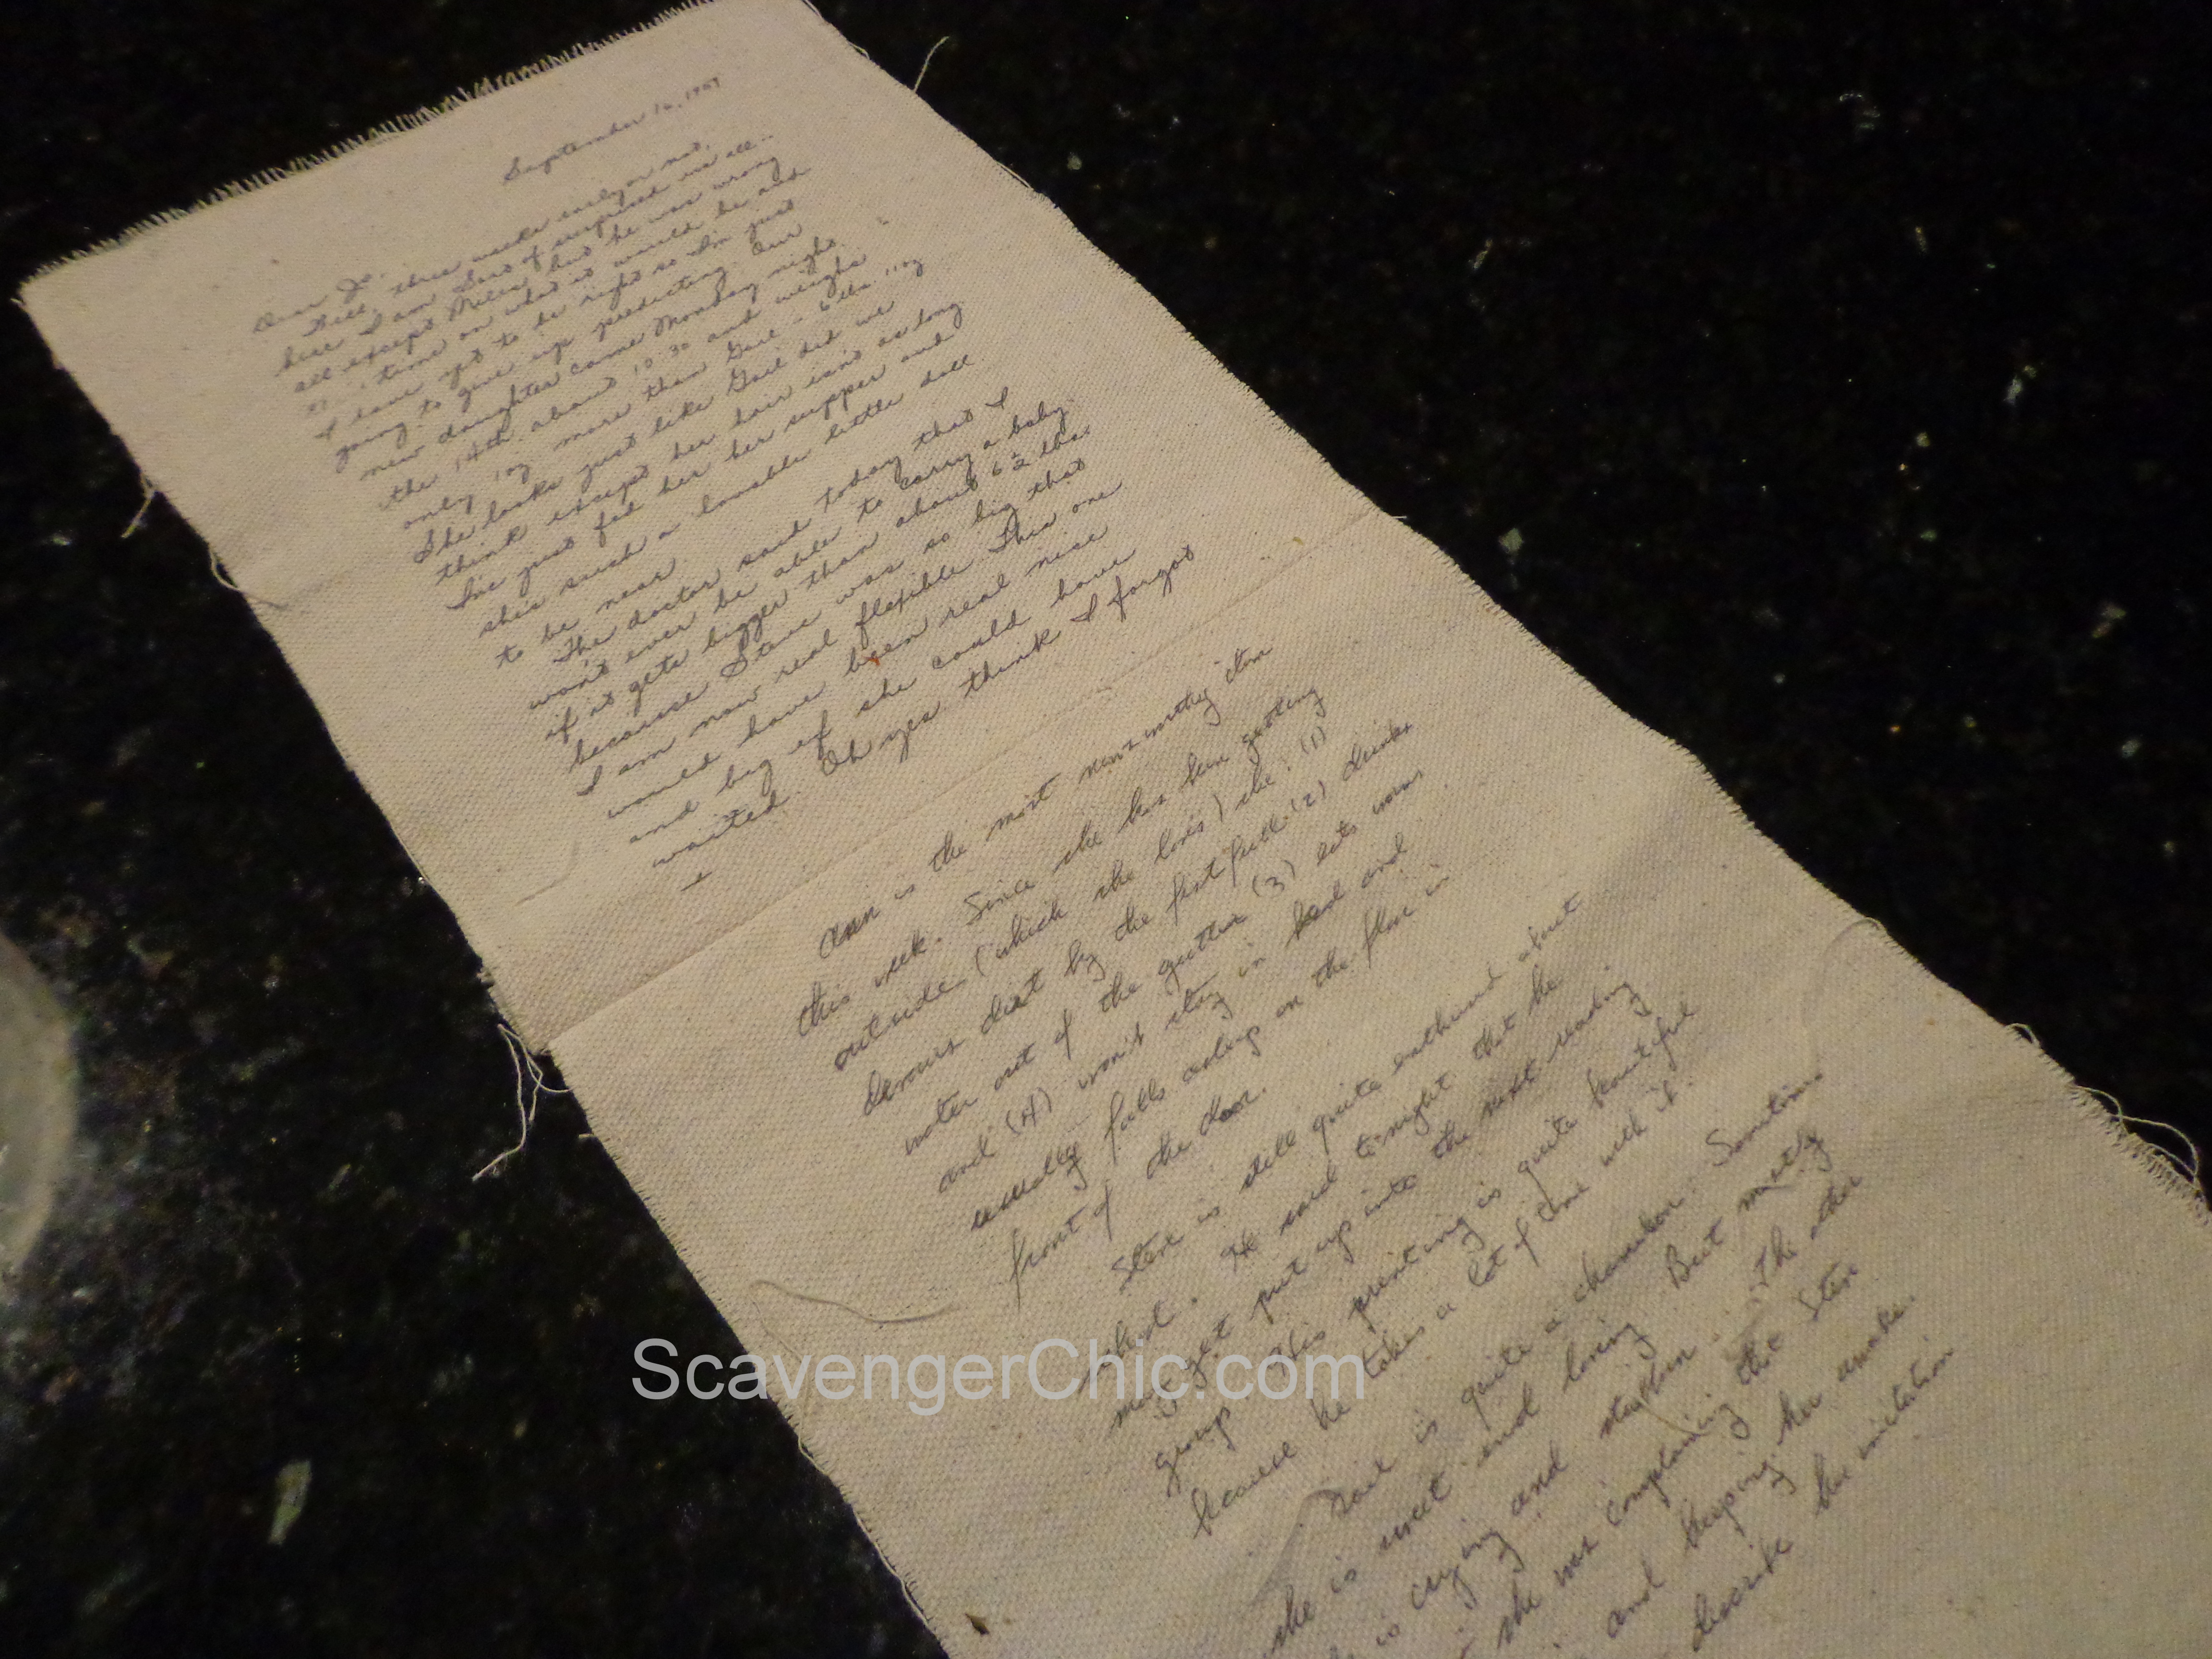 September 16, 1959
Dear Jo,
Well, three weeks early or not,
here I am. Sort of surprised us all --
all except Milen but he was wrong
time on what it would be and
I have yet to be right so I'm just
going to give up predicting. Our
new daughter came Monday night
the 14th about 10:30 and weighs
only 1 oz more than Gail - 6 lbs 11 oz
She looks just like Gail did we
think except her hair isn't as long
I've just fed her her supper and
she's such a lovable little doll
to be near.
The doctor said today that I
won't ever be able to carry a baby
if it gets bigger than about 6½ lbs.
because Steve was so big that
I am now real flexible. This one
would have been real nice
and big if she could have
waited. Oh yes think I forgot
Ann is the most newsworthy item
this week. Since she has been getting
outside (which she loves) she: (1)
devours dirt by the fistfull (2) drinks
water out of the gutter (3) eats worms
and (4) won't stay in bed and
usually falls asleep on the floor in
front of the door.
Steve is still quite enthused about
school. He said tonight that he
may get put up into the next reading
group. His printing is quite beautiful
because he takes a lot of time with it.
Gail is quite a chameleon. Sometimes
she is sweet and loving But mostly
is crying and stubborn. The other
she was complaining that Steve
and keeping her awake.
describe her imitation
ScavengerChic.com